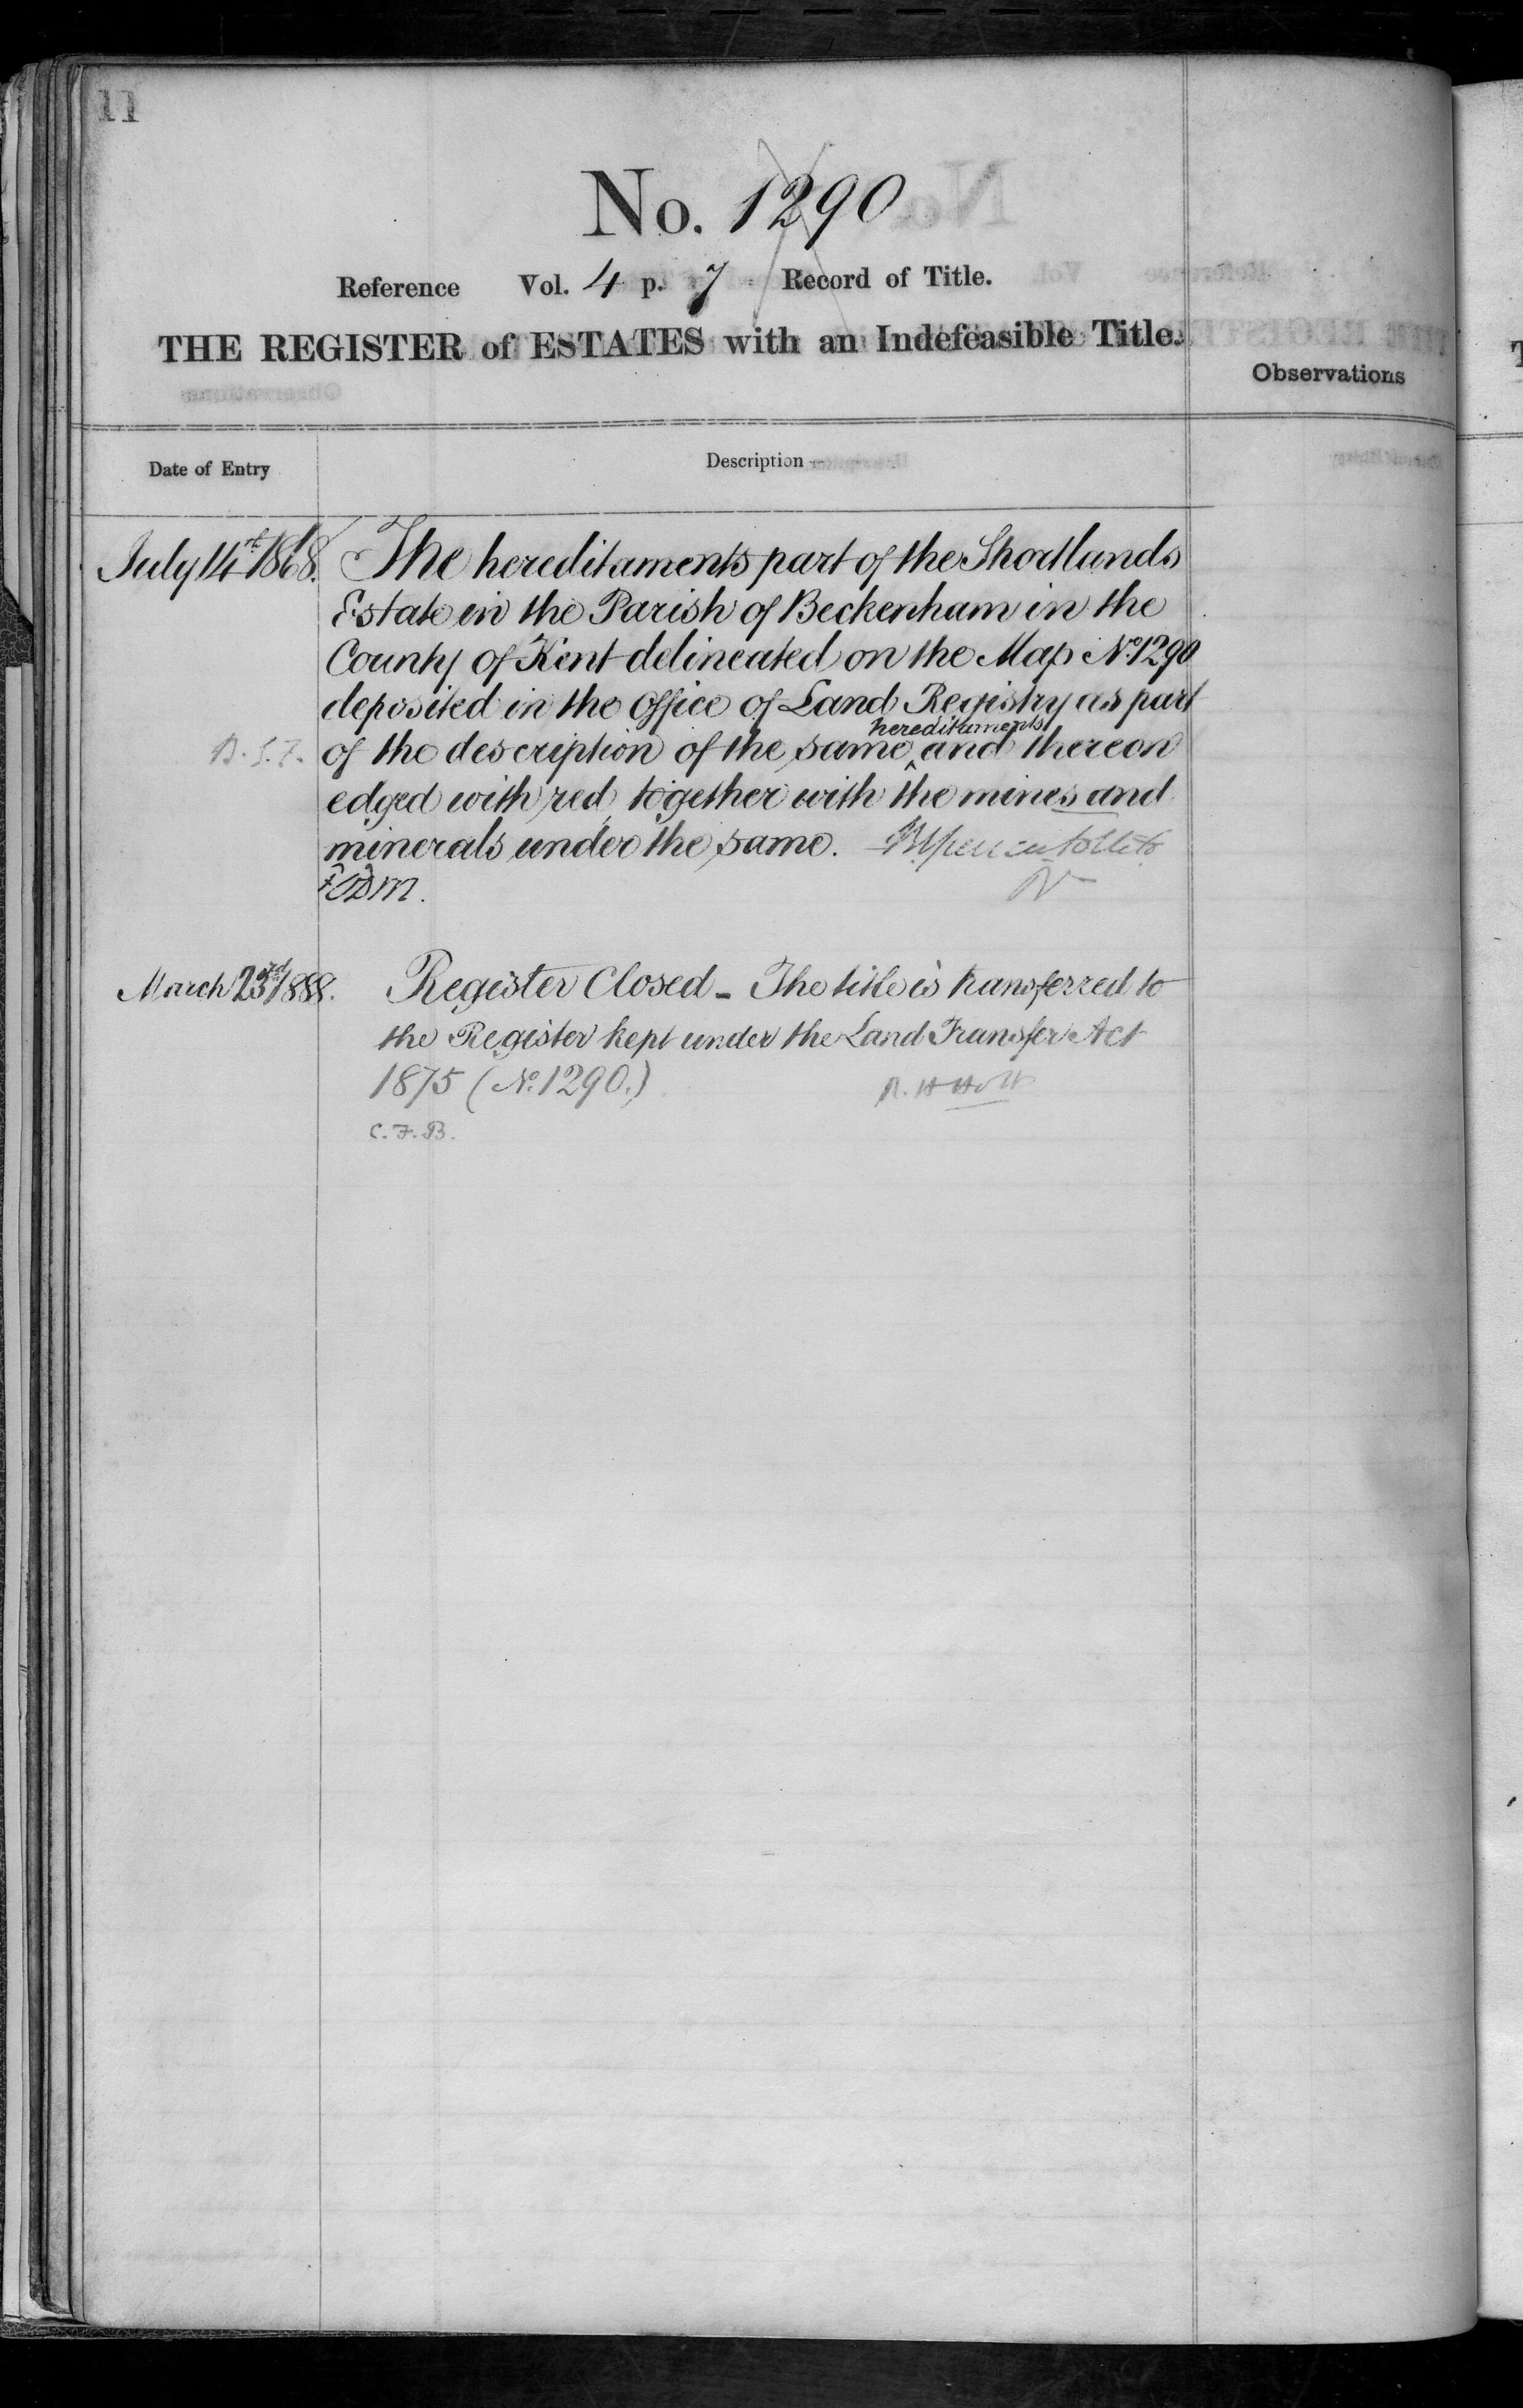 11
No. 1290
Reference Vol. 4 p. 7 Record of Title.
THE REGISTER of ESTATES with an Indefeasible Title.
Observations
Date of Entry
Description
July 14th 1868. The hereditaments part of the Shortlands
Estate in the Parish of Beckenham in the
County of Kent delineated on the Map No. 1290
deposited in the Office of Land Registry as part
hereditaments
B.S.F. of the description of the same ^ and thereon
edged with red, together with the mines and
minerals under the same.
March 23rd 1888. Register Closed - The title is transferred to
the Register kept under the Land Transfer Act
1875 (No. 1290.) R. H Holt
C.F.B.